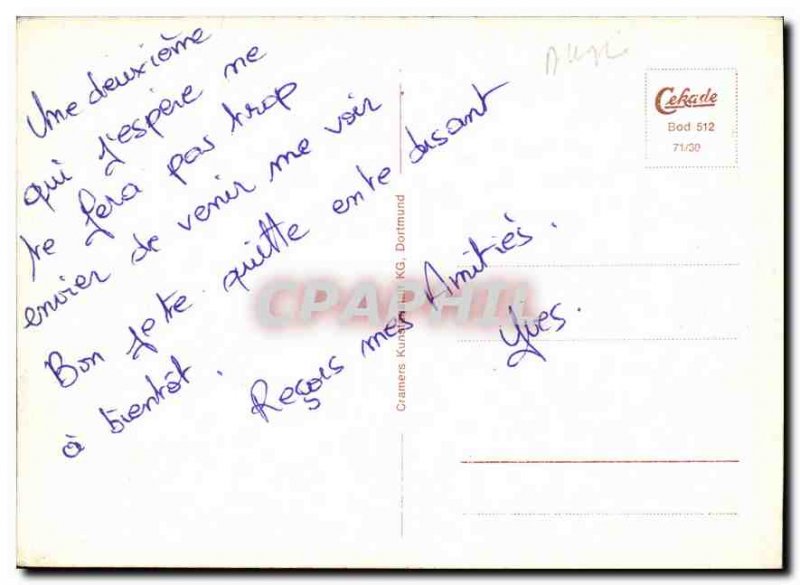 Une deuxième
qui j'espère ne
te fera pas trop
envier de venir me voir
Bon je te quitte ente disant
à bientôt.
Reçois mes Amitiés.
Yves.
Cekade
Bod 512
71/30
Cramers KG, Dortmund
CPAPHIL